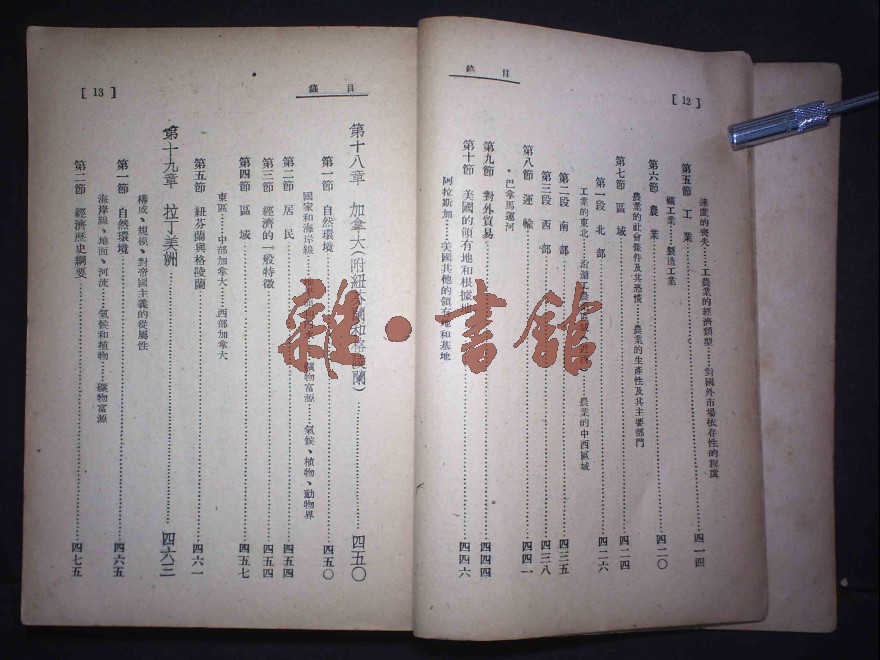 [12]
目錄
速度的喪失……工農業的經濟類型……對國外市場依存性的程度
第五節 工業……四一四
礦工業……製造工業
第六節 農業……四二〇
農業的社會條件及其恐慌……農業的生產性及其主要部門
第七節 區域……四二四
第一段 北部……四二六
工業的東北……農業的中西區域
第二段 南部……四三五
第三段 西部……四三八
第八節 運輸……四四一
巴拿馬運河
第九節 對外貿易……四四四
第十節 美國的領有地和根據地……四四六
阿拉斯加……美國其他的領有地和基地
[13]
目錄
第十八章 加拿大(附紐芬蘭和格陵蘭)……四五〇
第一節 自然環境……四五〇
國家和海岸線……礦物富源……氣候、植物、動物界
第二節 居民……四五四
第三節 經濟的一般特徵……四五四
第四節 區域……四五七
東區……中部加拿大……西部加拿大
第五節 紐芬蘭與格陵蘭……四六一
第十九章 拉丁美洲……四六三
構成、規模、對帝國主義的從屬性
第一節 自然環境……四六五
海岸線、地面、河流……氣候和植物……礦物富源
第二節 經濟歷史綱要……四七五
雜·書館